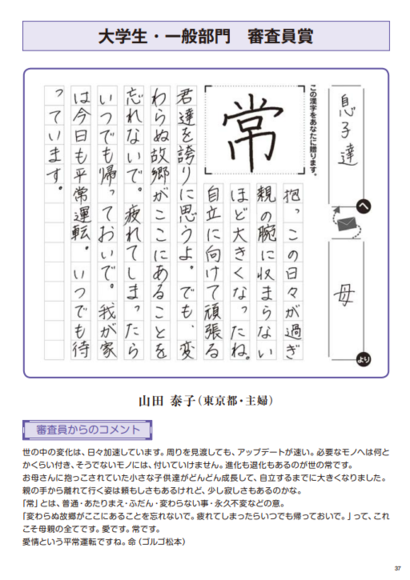 大学生・一般部門　審査員賞
息子達
へ
母
より
この漢字をあなたに贈ります。
常
抱っこの日々が過ぎ
親の腕に収まらない
ほど大きくなったね。
自立に向けて頑張る
君達を誇りに思うよ。でも、変
わらぬ故郷がここにあることを
忘れないで。疲れてしまったら
いつでも帰っておいで。我が家
は今日も平常運転。いつでも待
っています。
山田 泰子（東京都・主婦）
審査員からのコメント
世の中の変化は、日々加速しています。周りを見渡しても、アップデートが速い。必要なモノへは何と
かくらい付き、そうでないモノには、付いていけません。進化も退化もあるのが世の常です。
お母さんに抱っこされていた小さな子供達がどんどん成長して、自立するまでに大きくなりました。
親の手から離れて行く姿は頼もしさもあるけれど、少し寂しさもあるのかな。
「常」とは、普通・あたりまえ・ふだん・変わらない事・永久不変などの意。
「変わらぬ故郷がここにあることを忘れないで。疲れてしまったらいつでも帰っておいで。」って、これ
こそ母親の全てです。愛です。常です。
愛情という平常運転ですね。命（ゴルゴ松本）
37